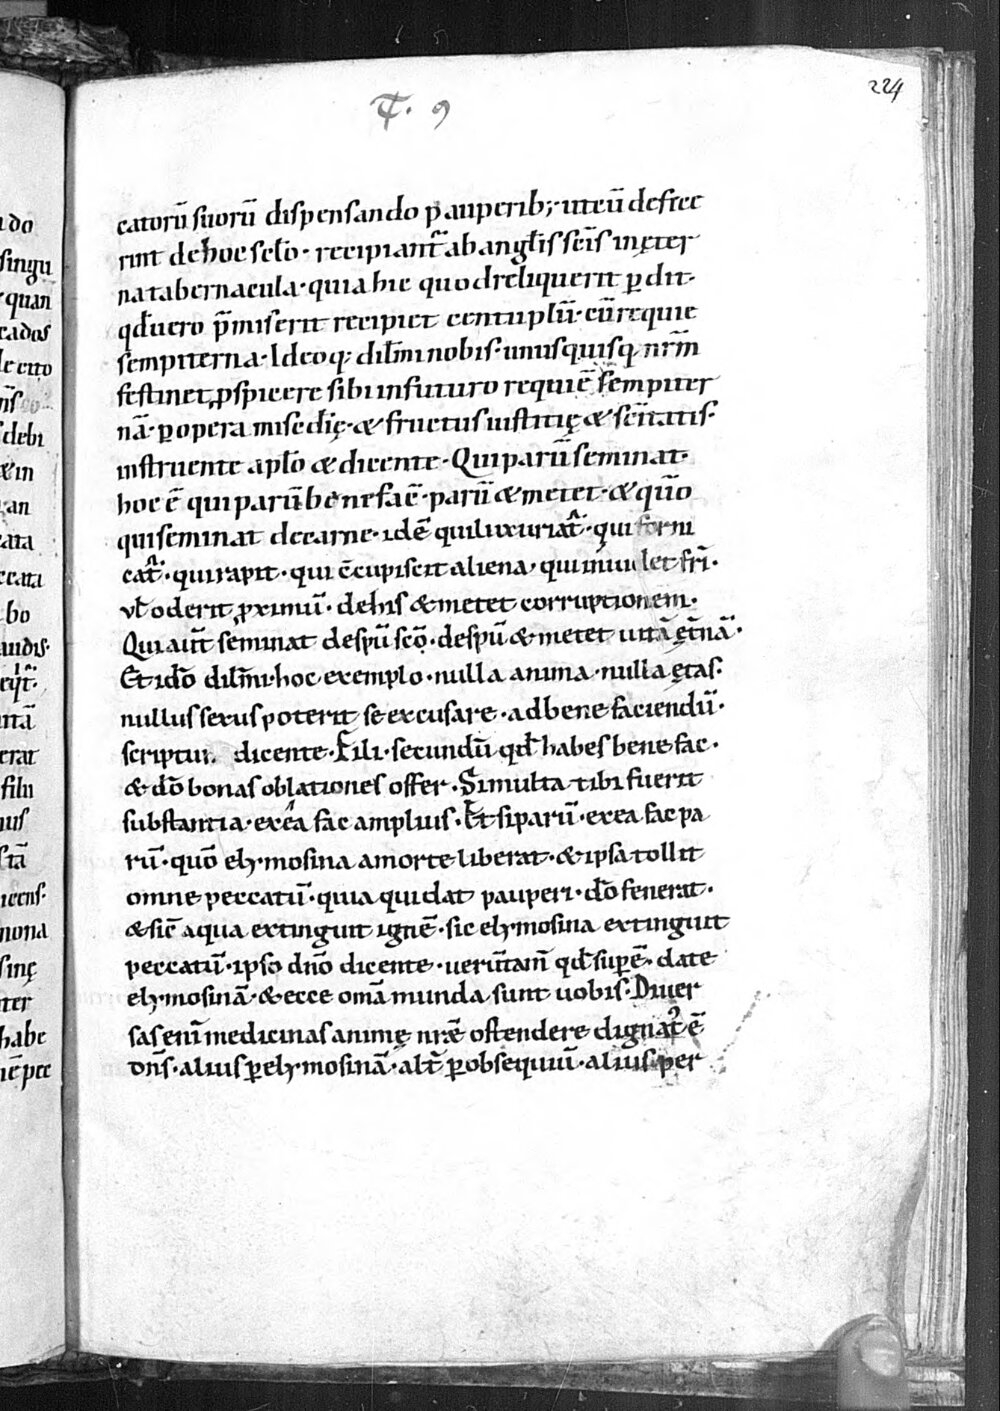 224
T. 9
catorū suorū dispensando pauperib; · ut cū defec
rint de hoc sclo · recipiant᷑ ab anglis scis in ęter
na tabernacula · quia hic quod reliquerit pdit ·
qd uero p̄miserit recipiet centuplū · cū requie
sempiterna · Ideoq; dilmi nobis · unusquisq; nrm̄
festinet pspicere sibi in futuro requiē sempiter
nā · p opera misc̄dię · & fructus iustitię & sc̄itatis ·
instruente aplo & dicente · Qui parū seminat ·
hoc ē qui parū bene facē · parū & metet · & quō
qui seminat de carne · idē qui luxuriat᷑ · qui forni
cat᷑ · qui rapit · qui c̄cupiscit aliena · qui inuidet fri ·
vl oderit pximū · de his & metet corruptionem ·
Qui aut̄ seminat de spū scō · de spū & metet uitā ęt̄nā ·
Et idō dilmi · hoc exemplo · nulla anima · nulla ętas ·
nullus sexus poterit se excusare · ad bene faciendū ·
scriptur dicente · Fili · secundū qd habes bene fac ·
& dō bonas oblationes offer · Si multa tibi fuerit
substantia · ex ea fac amplius · Et si parū · ex ea fac pa
rū · quō elymosina a morte liberat · & ipsa tollit
omne peccatū · quia qui dat pauperi · dō fenerat ·
& sic̄ aqua extinguit ignē · sic elymosina extinguit
peccatū · ipso dn̄o dicente · uerūtam̄ qd supē · date
elymosinā · & ecce om̄a munda sunt uobis · Diuer
sas eni medicinas animę nrę ostendere dignat᷑ ē
dn̄s · alius p elymosinā · alt̄ p obsequiū · alius per